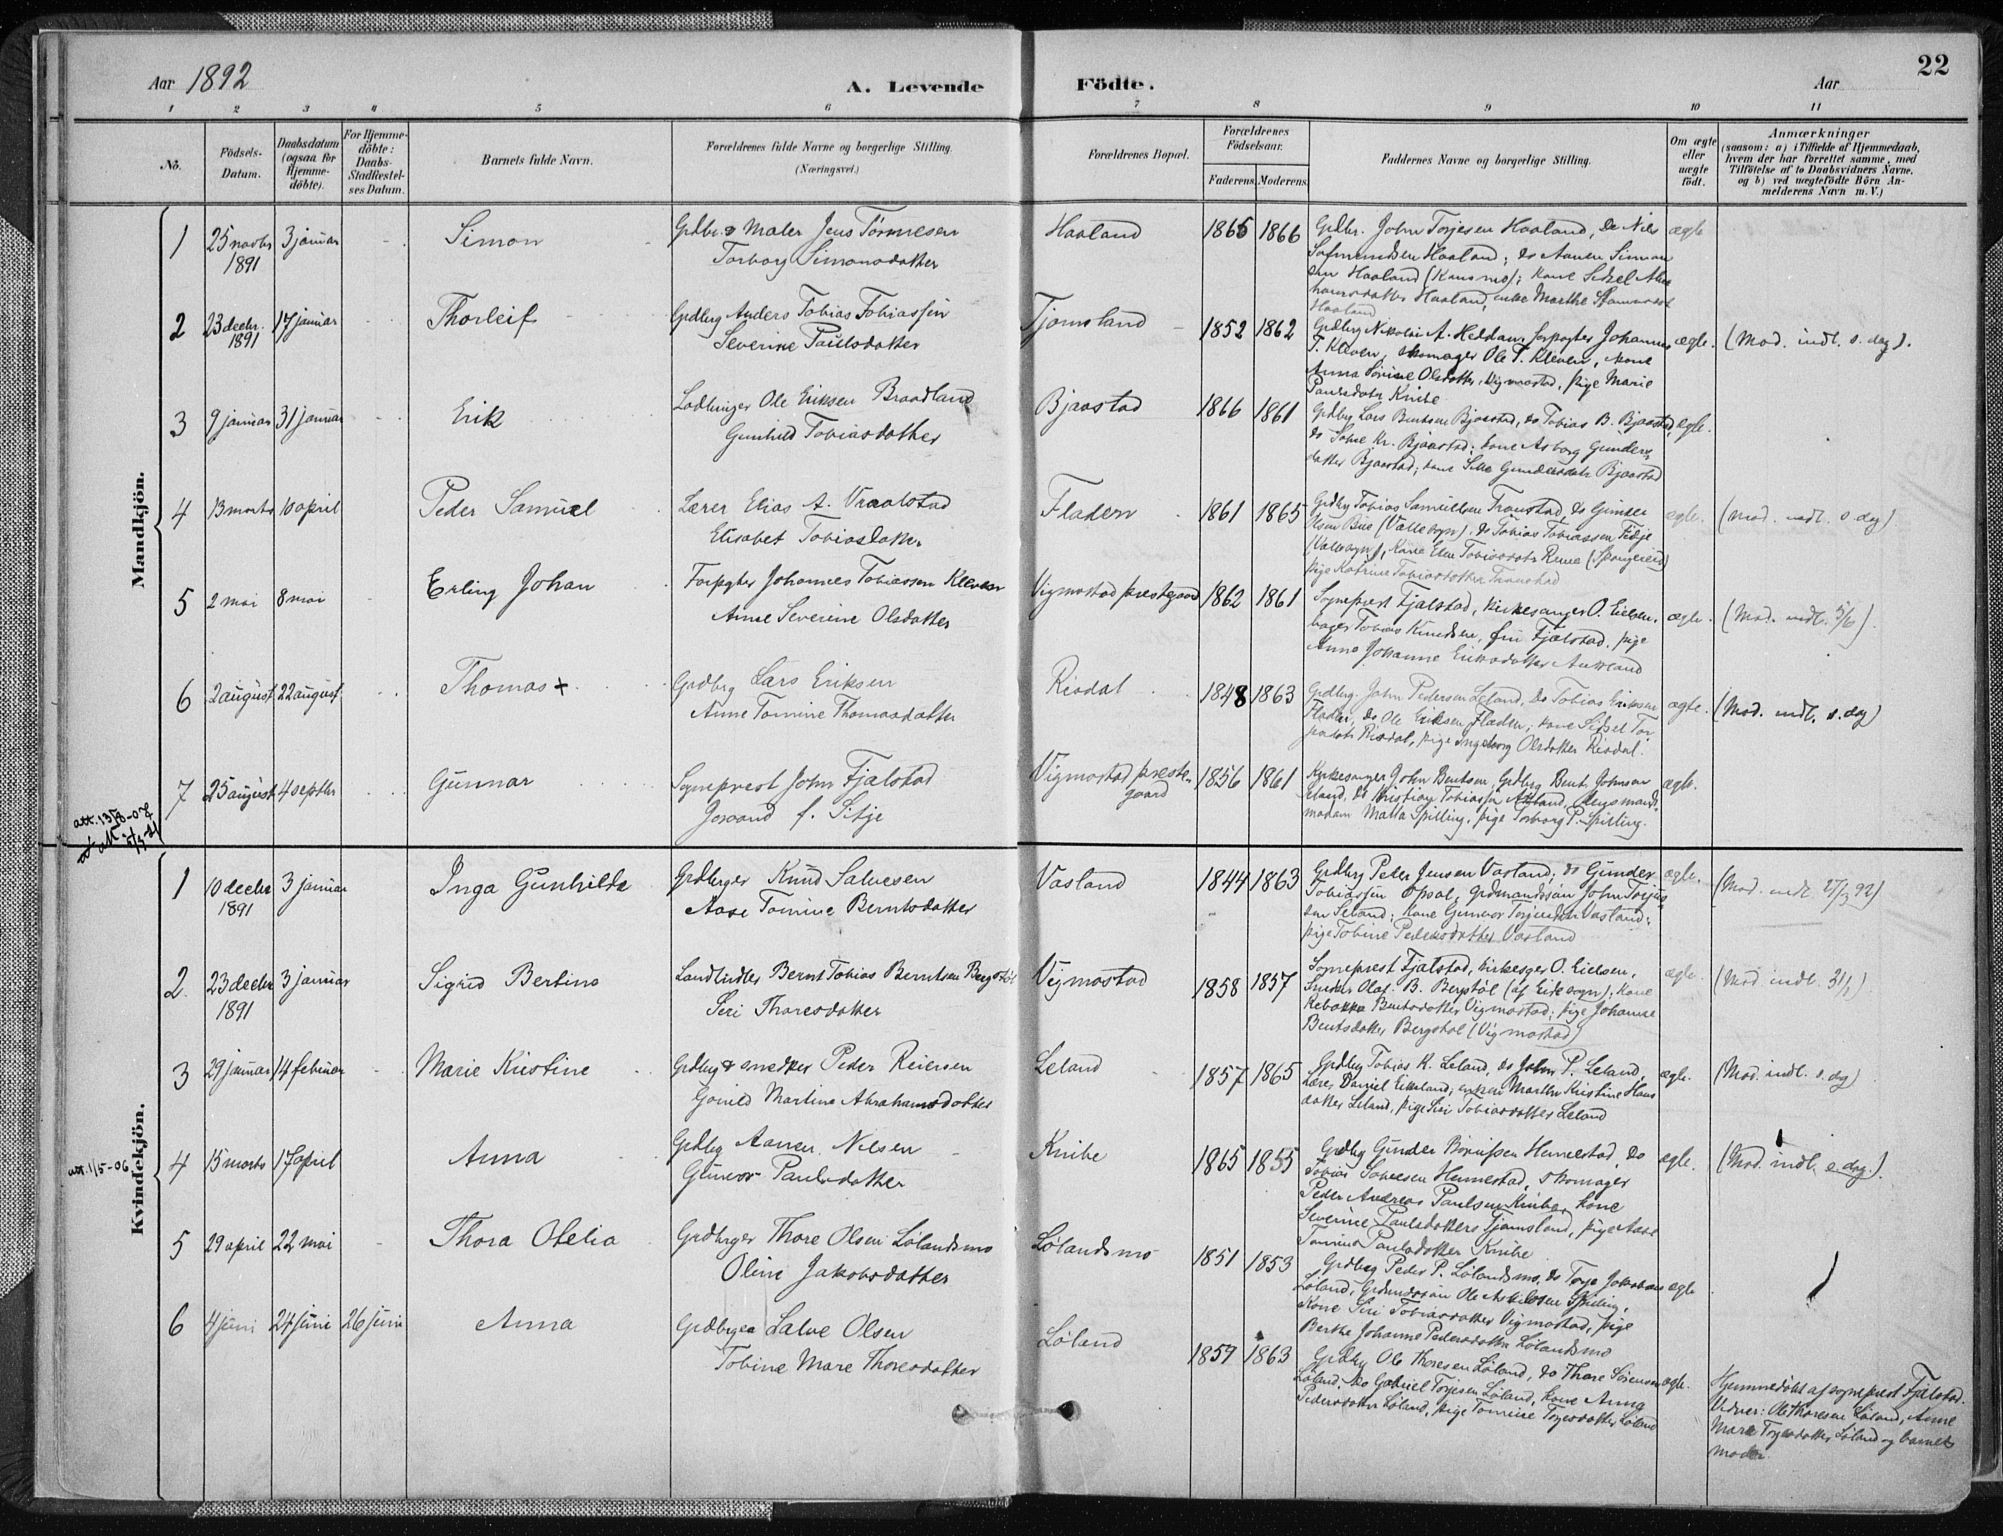 22
Aar 1892
A. Levende
Födte.
Aar
1 2 3 4 5 6 7 8 9 10 11
Nö.
Födsels-
Datum.
Daabsdatum
(ogsaa for
Hjemme-
döbte).
For Hjemme-
döbte:
Daabs-
Stadfæstel-
ses Datum.
Barnets fulde Navn.
Forældrenes fulde Navne og borgerlige Stilling.
(Næringsvei.)
Forældrenes Bopæl.
Forældrenes
Födselsaar.
Faderens. Moderens.
Faddernes Navne og borgerlige Stilling.
Om ægte
eller
uægte
födt.
Anmærkninger
(saasom: a) i Tilfælde af Hjemmedaab,
hvem der har forrettet samme, med
Tilföielse af to Daabsvidners Navne,
og b) ved uægtefödte Börn An-
melderens Navn m. V.)
Mandkjön.
1 25 novbr 1891 3 januar Simon
Grdbr. & Maler Jens Tönnesen
Torborg Simonsdatter
Haaland 1865 1866
Grdbr. John Torjesen Haaland, Do Nils
Haaland; do Aanen Simon
sen Haaland
Haaland, enke Marthe
Haaland
ægte
2 23 decbr. 1891 17 januar Thorleif
Grdbrg Anders Tobias Tobiassen
Severine Paulsdatter
Tjomsland 1852 1862
Grdbrg Nikolai A. Heddan, forpagter Johannes
T. Kleven, skomager Ole T. Kleven, kone
Anna Sörine Olsdatter, Vigmostad, pige Marie
Paulsdatr Knibe
ægte. (Mod. indl. s. dag).
3 9 januar 31 januar Erik
Ole Eriksen Braadland
Gunhild Tobiasdatter
Bjaastad 1866 1861
Grdbrg Lars Bentsen Bjaastad, do Tobias B. Bjaastad,
do Salve Kr. Bjaastad; kone Asborg Gunders
datter Bjaastad; kone Silla Gundersdatr Bjaastad
ægte.
4 13 marts 10 april Peder Samuel
Lærer Elias A. Vraalstad
Elisabet Tobiasdatter
Fladen 1861 1865
Grdbrg Tobias Samuelsen Traustad, do Gunder
Olsen Bue (Valle sogn), do Tobias Tobiassen
(Valle sogn), Kone Elen Tobiasdatr Reme (Spangereid)
pige Katrine Tobiasdatter Traustad
ægte. (mod. indl. s. dag)
5 2 mai 8 mai Erling Johan
Forpgter Johannes Tobiassen Kleven
Anne Severine Olsdatter
Vigmostad prestegaard 1862 1861
Sogneprest Fjalstad, kirkesanger O. Eielsen,
bager Tobias Knudsen, fru Fjalstad, pige
Anne Johanne Eriksdatter Aukland
ægte. (Mod. indl. 5/6).
6 2 august 22 august Thomas +
Grdbrg Lars Eriksen
Anne Tomine Thomasdatter
Risdal 1848 1863
Grdbrg. John Pedersen Leland, Do Tobias Eriksen
Fladen, do Ole Eriksen Fladen; kone Sidsel Tor
Risdal, pige Ingeborg Olsdatter Risdal.
ægte. (Mod. indl. s. dag)
7 25 august 4 septbr Gunnar
Sogneprest John Fjalstad
f. Sitje
Vigmostad preste-
gaard
1856 1861
Kirkesanger John Bentsen, Grdbrg Bent Johnsen
Leland, Do Kristian Tobiassen
madam Malla Spilling, pige Torborg P. Spilling.
ægte.
att. 13/8-07
Kvindekjön.
1 10 decbr 1891 3 januar Inga Gunhilde
Grdbrger Knud Salvesen
Aase Tomine Berntsdatter
Vasland 1844 1863
Grdbrg Peter Jensen Vasland, do Gunder
Tobiassen Opsal, grdmandssön John Torjus
sen Leland; kone Gunvor Torjusdatr Vasland;
pige Tobine Pedersdatter Vasland
ægte. (Mod. indl. 27/3 92)
2. 23 decbr 1891 3 januar Sigrid Bertine
Landhndler Bernt Tobias Berntsen Bergstöl
Siri Thoresdatter
Vigmostad 1858 1857
Sogneprest Fjalstad, kirkesger O. Eielsen,
Olaf B. Bergstöl (af Eiken sogn); kone
Rebekka Bentsdatter Vigmostad; pige Johanne
Bentsdatter Bergstöl (Vigmostad)
ægte. (Mod. indl. 31/1).
3 29 januar 14 februar Marie Kristine
Grdbrg & snedker Peder Reiersen
Gunild Martine Abrahamsdatter
Leland 1857 1865
Grdbrg Tobias K. Leland, do John P. Leland,
Lærer Daniel Eikeland; enken Marthe Kristine Hans
datter Leland, pige Siri Tobiasdatter Leland
ægte. (Mod. indl. s. dag)
att. 1/5-06
4 15 marts 17 april Anna
Grdbrg Aanen Nilsen
Gunvor Paulsdatter
Knibe 1865 1855
Grdbrg Gunder Hunnestad, do
Tobias Salvesen Hunnestad, skomager
Peder Andreas Paulsen Knibe, kone
Severine Paulsdatter Tjomsland, pige Aase
Tomine Paulsdatter Knibe
ægte. (Mod. indl. s. dag.).
5 29 april 22 mai Thora Ofelia
Grdbrger Thore Olsen Lölandsmo
Oline Jakobsdatter
Lölandsmo 1851 1853
Grdbrg Peder P. Lölandsmo, do Torje Jakobsen
Löland, Grdmandssön Ole Aslaksen Spilling,
Kone Siri Tobiasdatter Vigmostad, pige
Berthe Johanne Pedersdatter Lölandsmo
ægte
6 4 juni 24 juni 26 juni Anna
Grdbrger Salve Olsen
Tobine Marie Thoresdatter
Löland 1859 1863
Grdbrg Ole Thoresen Löland, do Thore Sörensen
Löland, Do Gabriel Torjesen Löland, kone Anna
Pedersdatter Löland, pige Tomine Torjesdatter Löland
ægte.
Hjemmedöbt af sogneprest Fjalstad.
Vidner: Ole Thoresen Löland, Anne
Marie Torjesdatter Löland og barnets
moder.